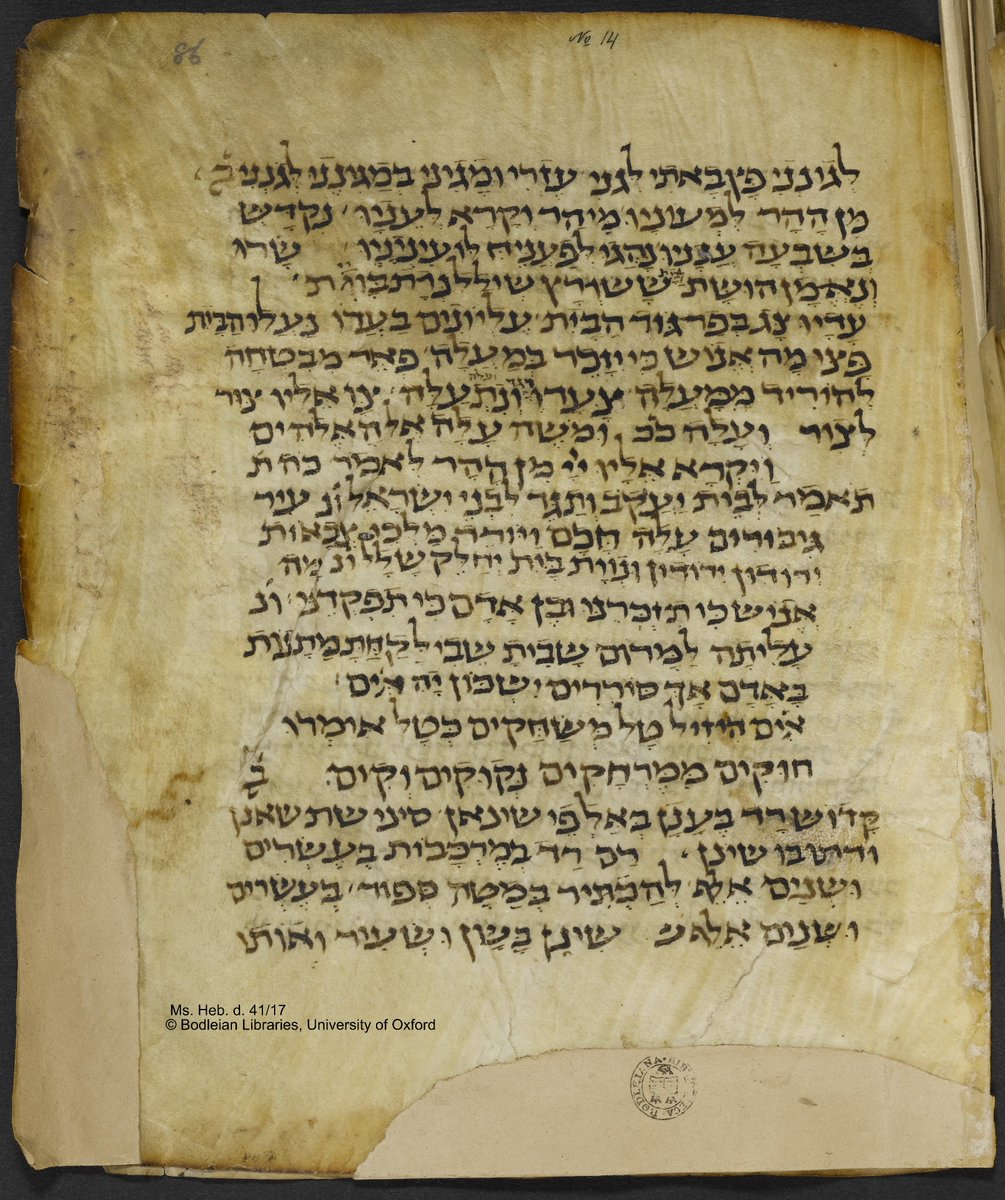 86
№ 14
לגינני פץ באתי לגני עזרי ומגיני במגינני לגנני
מן ההר למעוניו מיהר וקרא לעניו נקדש
בשבעה ענניו ונהגו לפעניח לו עיניניו שרו
ונאמן הושת ששדרץ שילל נרתבוגת
עדיו צג בפרגוד הבית עליונים בעדו נעלו הבית
פצו מה אנוש כי יזכר במעלה פאר מבטחה
להוריד ממעלה צעדו ונתעלה צו אליו צור
לצור ועלה ככ ומשה עלה אל האלהים
ויקרא אליו ייי מן ההר לאמר כה ת
תאמר לבית יעקב ותגד לבני ישראל ונ עיר
גיבורים עלה חכם ויורד מלכי צבאות
ידודון ידודון ונוות בית יחלק שלל ונ מה
אנוש כי תזכרנו ובן אדם כי תפקדנו ונ
עליתה למרום שבית שבי לקחת מתנות
באדם אף סוררים לשכון יה אים
אים היזיל טל משחקים כטל אומרו
חוקים ממרחקים נקוקים וקים
קדוש ירד בענן באלפי שינאן סיני שת שאנן
ודהטבו שינן רם רד במרכבות בעשרים
ושנים אלף להכתיר במטה ספור בעשרים
ושנים אלף שינן בשון ושעיר ואותו
Ms. Heb. d. 41/17
© Bodleian Libraries, University of Oxford